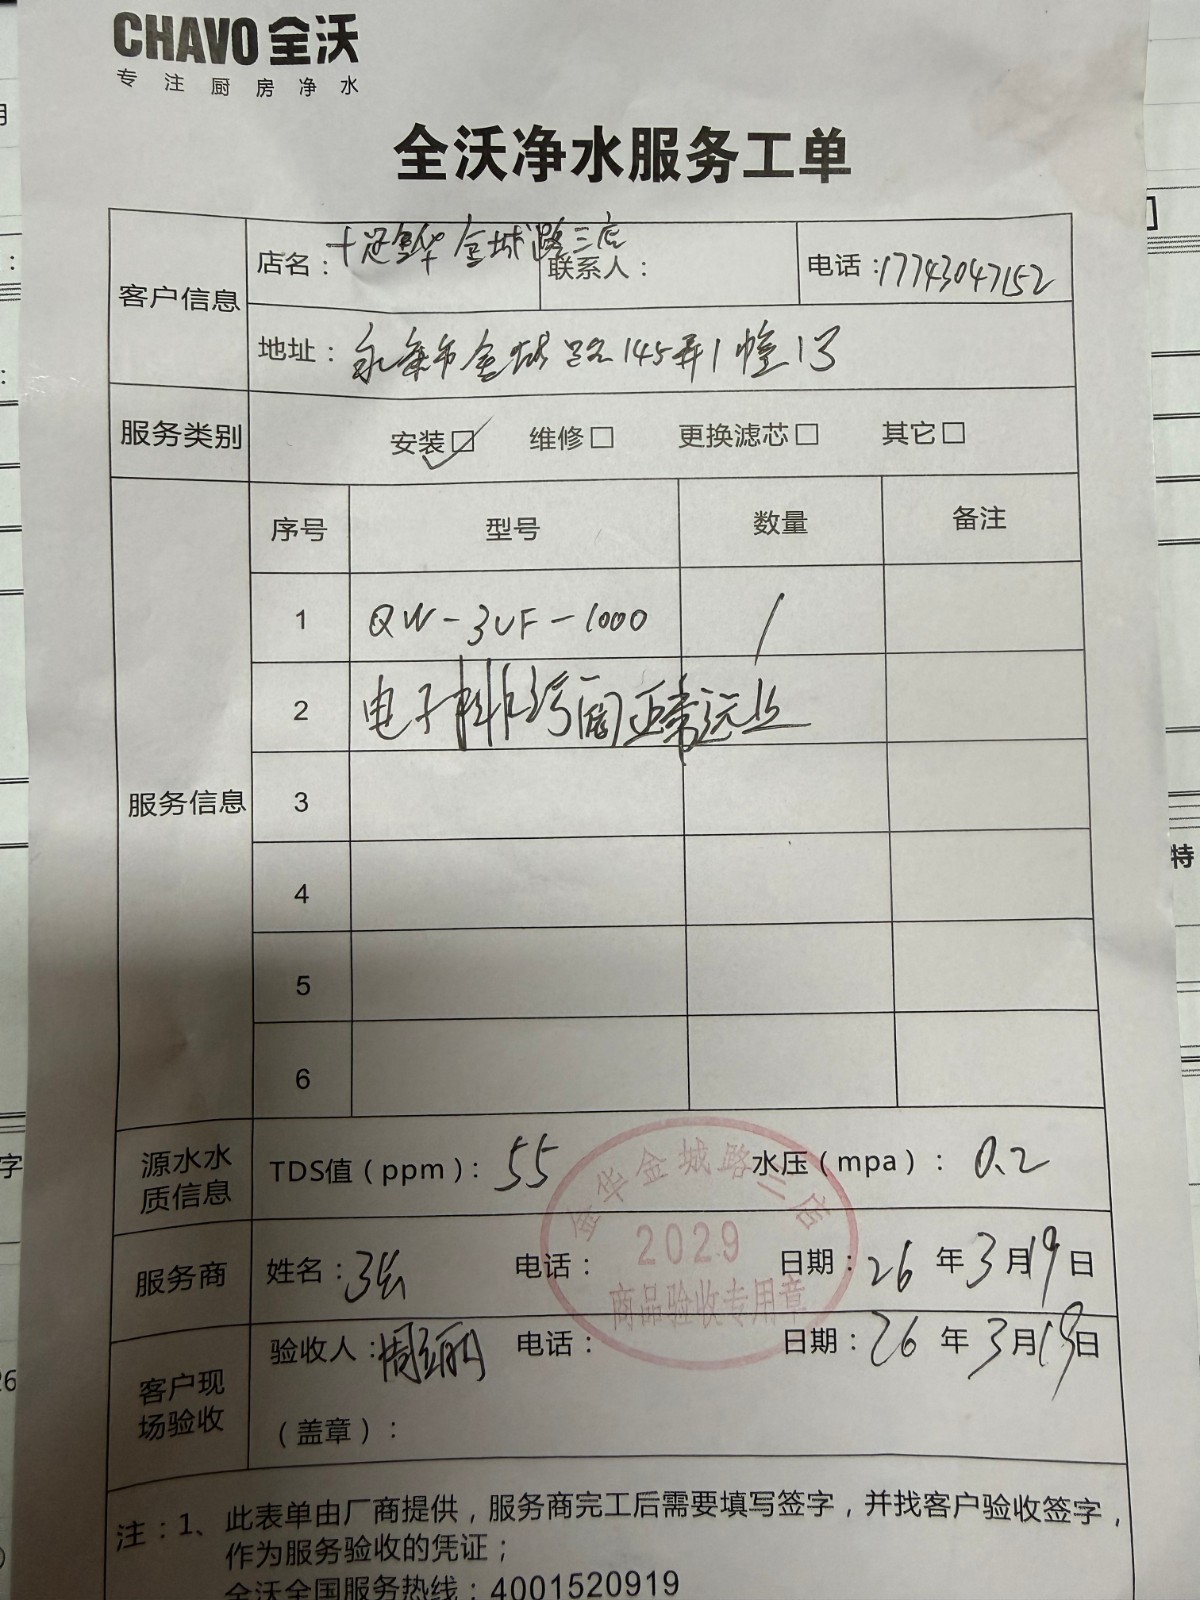 CHAVO 全沃
专注厨房净水
全沃净水服务工单
客户信息
店名: 金华金城路三店
联系人:
电话:17743047152
地址: 永康市金城路145弄1幢1号
服务类别
安装☑ 维修□ 更换滤芯□ 其它□
服务信息
序号 型号 数量 备注
1 QW-3UF-1000 1
2 电子排污阀正常运作
3
4
5
6
源水水质信息
TDS值(ppm): 55 水压(mpa): 0.2
服务商
姓名: 电话: 日期: 26 年 3 月 19 日
客户现场验收
验收人: 电话: 日期: 26 年 3 月 19 日
(盖章):
金华金城路三店
2029
商品验收专用章
注:1、此表单由厂商提供,服务商完工后需要填写签字,并找客户验收签字,
作为服务验收的凭证;
全沃全国服务热线:4001520919
特